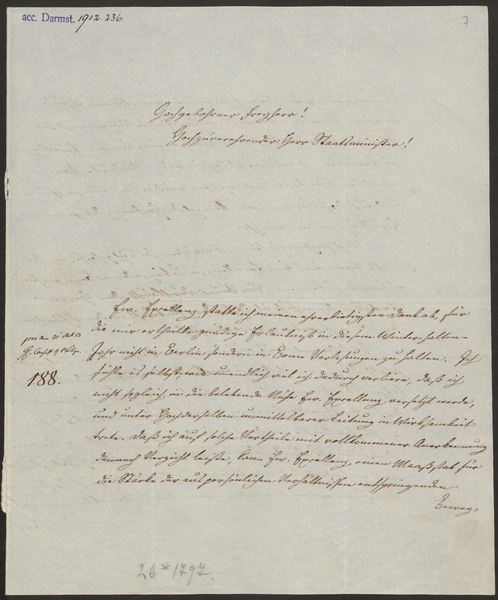 acc. Darmst. 1912.236
7
Hochgebohrner Freyherr!
Hochzuverehrender Herr Staatsminister!
Ew. Excellenz statte ich meinen ehrerbietigsten Dank ab, für
die mir ertheilte gnädige Erlaubniß in diesem Winterhalben
Jahr nicht in Berlin sondern in Bonn Vorlesungen zu halten. Ich
fühle es selbst, wie unendlich viel ich dadurch verliere, daß ich
nicht sogleich in die belebende Nähe Ew. Excellenz versetzt werde,
und unter Hochderselben unmittelbarer Leitung in Wirksamkeit
trete. Daß ich auf solche Vortheile mit vollkommener Anerkennung
dennoch Verzicht leiste, kann Ew. Excellenz einen Maaßstab für
die Stärke der aus persönlichen Verhältnissen entspringenden
Beweg-
188.
26*1797.